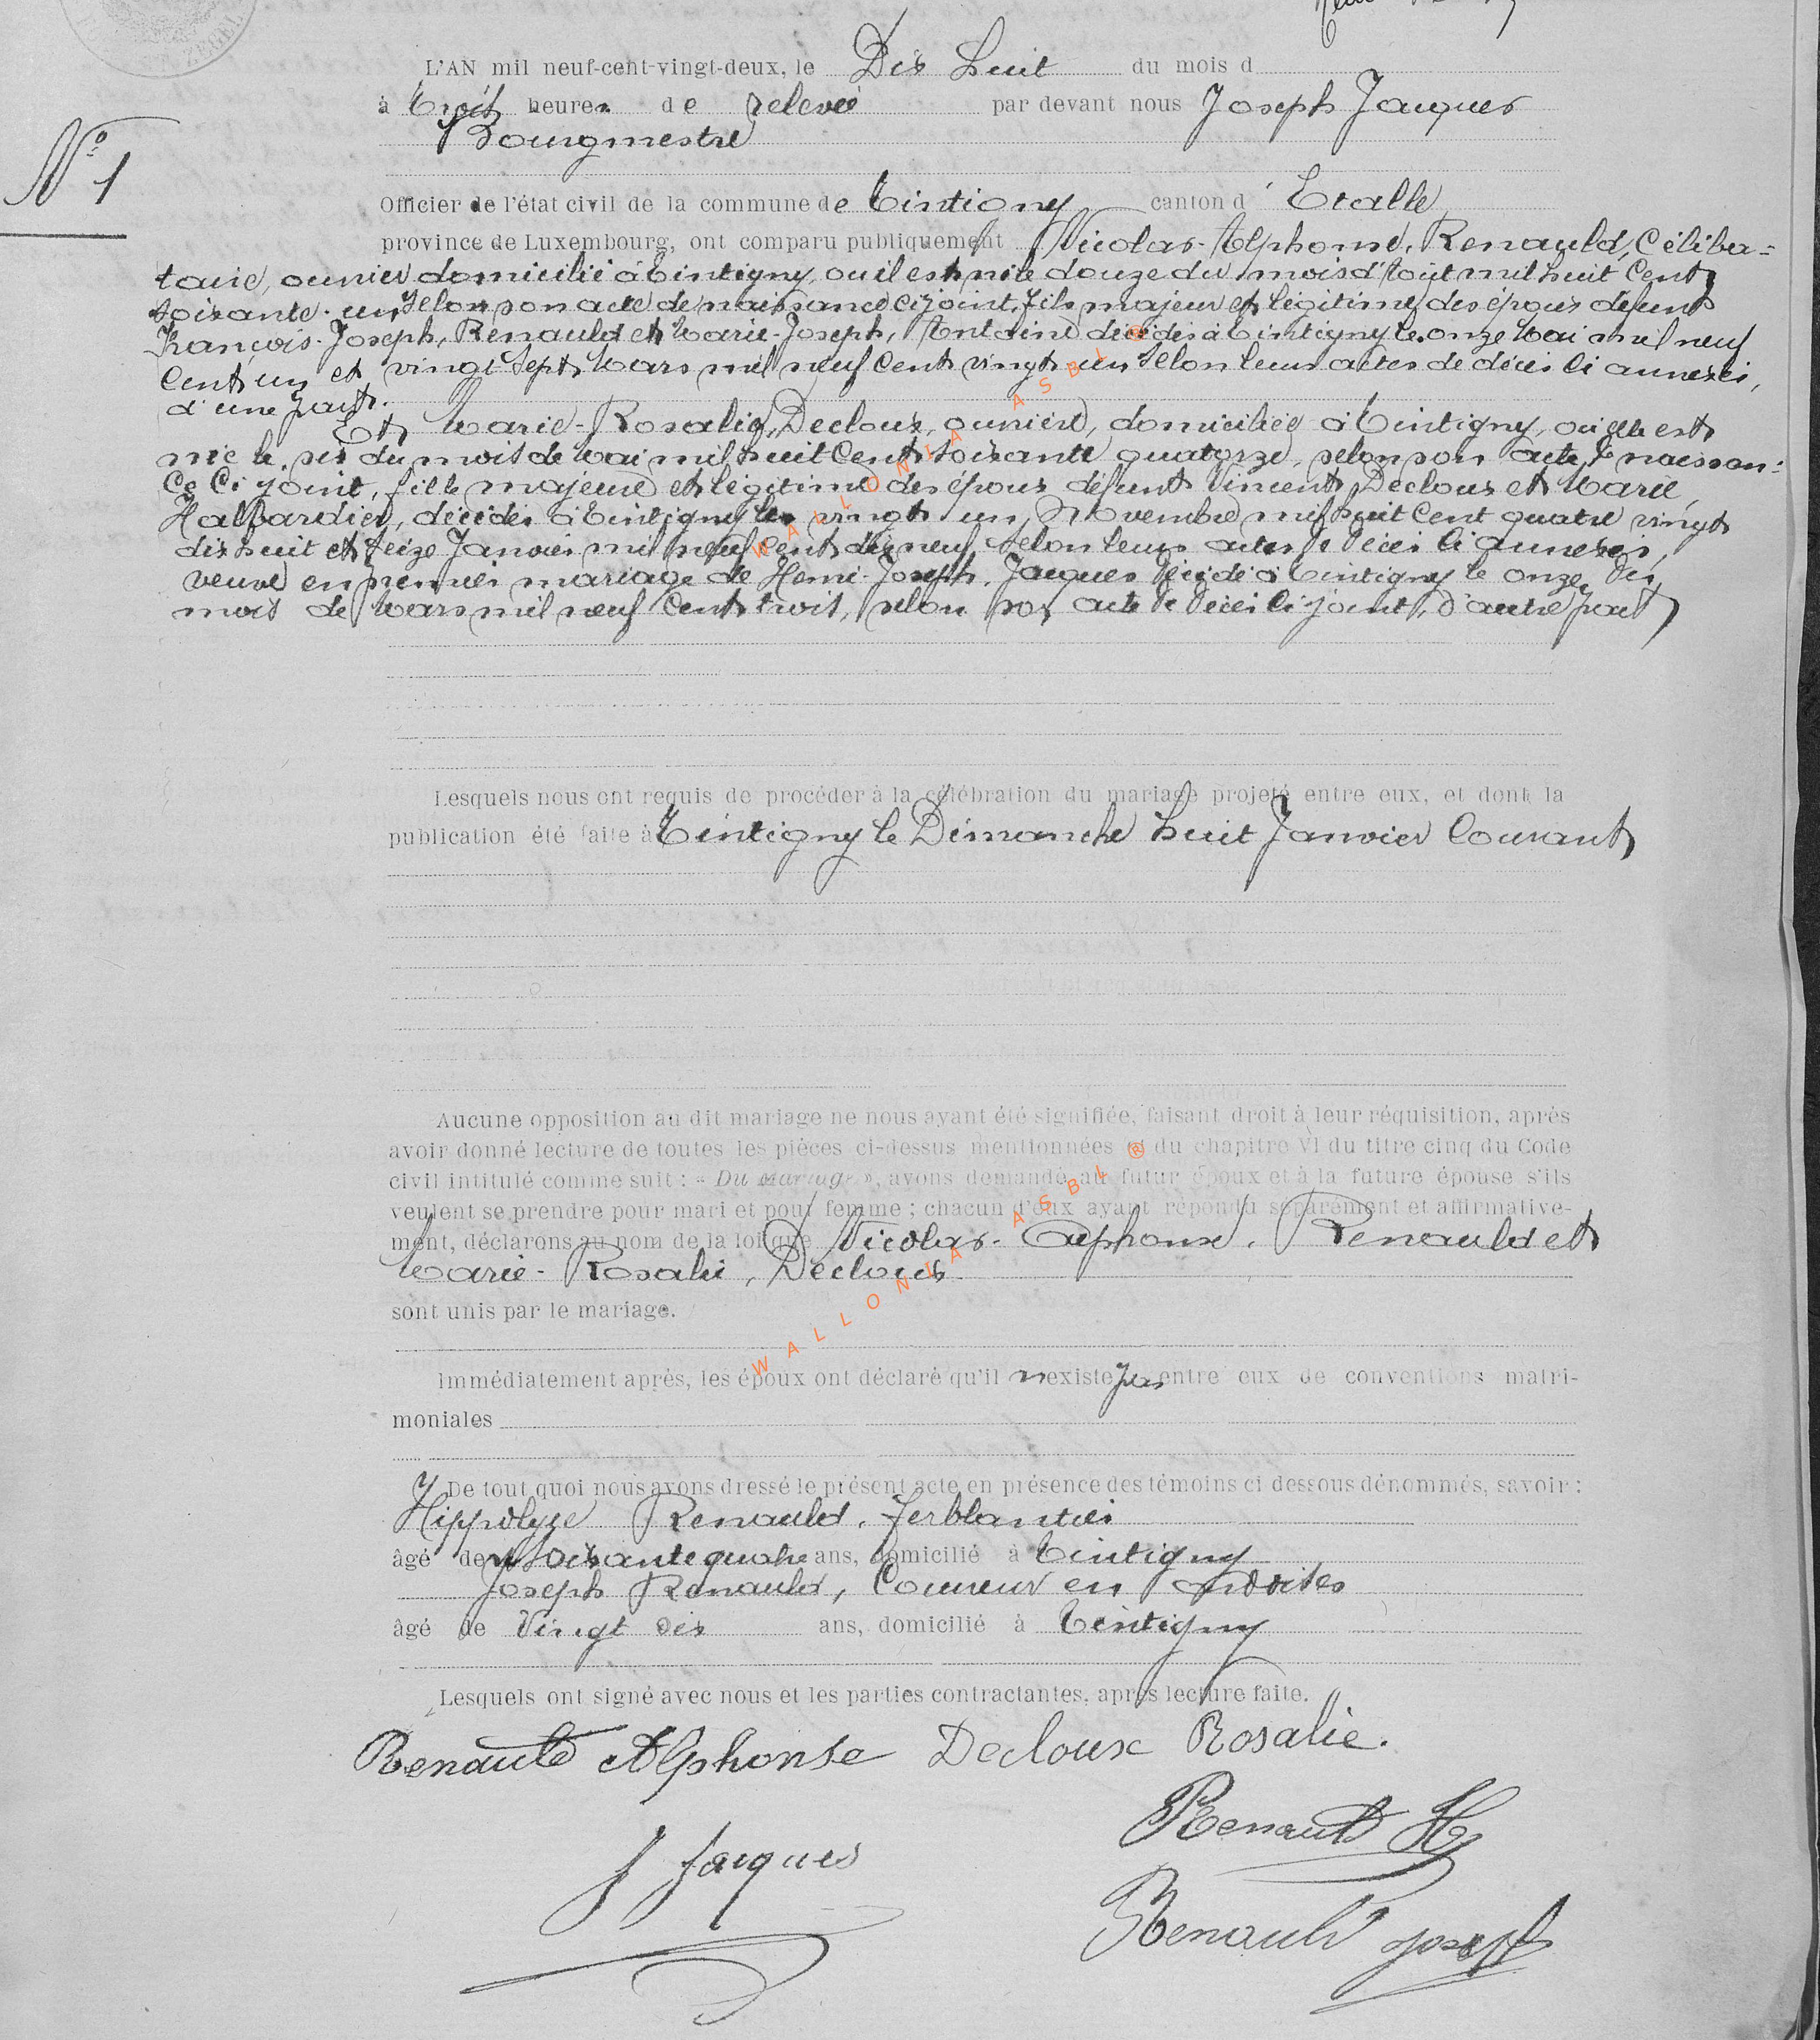 L'AN mil neuf-cent-vingt-deux, le Dix huit du mois d
à trois heures de relevée par devant nous Joseph Jacques
Bourgmestre
N° 1
Officier de l'état civil de la commune de Tintigny canton d' Etalle
province de Luxembourg, ont comparu publiquement Nicolas-Alphonse, Renauld, Céliba-
taire, ouvrier domicilié à Tintigny, ou il est né le douze du mois d'Août mil huit Cent
soixante-un, selon son acte de naissance ci joint, fils majeur et légitime des époux défunts
François-Joseph, Renauld et Marie-Joseph, Antoine décédés à Tintigny le onze Mai mil neuf
Cent un et vingt-sept Mars mil neuf Cent vingt un selon leurs actes de décès ci annexés,
d'une part.
Et Marie-Rosalie, Decloux, ouvrière, domiciliée à Tintigny, ou elle est
née le six du mois de Mai mil huit Cent soixante quatorze, selon son acte de naissan-
ce Ci joint, fille majeure et légitime des époux défunts Vincent, Decloux et Marie,
Halbardier, décédés à Tintigny les vingt un Novembre mil huit Cent quatre vingt
dix huit et seize Janvier mil neuf Cent dix neuf, selon leurs actes de décès ci annexés,
veuve en premier mariage de Henri-Joseph, Jacques décédé à Tintigny le onze du
mois de Mars mil neuf Cent trois, selon son acte de décès ci joint, d'autre part
Lesquels nous ont requis de procéder à la célébration du mariage projeté entre eux, et dont la
publication été faite à Tintigny le Dimanche huit Janvier Courant
Aucune opposition au dit mariage ne nous ayant été signifiée, faisant droit à leur réquisition, après
avoir donné lecture de toutes les pièces ci-dessus mentionnées et du chapitre VI du titre cinq du Code
civil intitulé comme suit : « Du Mariage », avons demandé au futur époux et à la future épouse s'ils
veulent se prendre pour mari et pour femme ; chacun d'eux ayant répondu séparément et affirmative-
ment, déclarons au nom de la loi que Nicolas-Alphonse, Renauld et
Marie-Rosalie, Decloux
sont unis par le mariage.
Immédiatement après, les époux ont déclaré qu'il n'existe pas entre eux de conventions matri-
moniales
De tout quoi nous avons dressé le présent acte en présence des témoins ci dessous dénommés, savoir :
Hippolyte Renauld, ferblantier
âgé de soixante quatre ans, domicilié à Tintigny
Joseph Renauld, Coureur en
âgé de Vingt six ans, domicilié à Tintigny
Lesquels ont signé avec nous et les parties contractantes, après lecture faite.
Renauld Alphonse Decloux Rosalie.
Renauld H
J Jacques
Renauld Joseph
WALLONIA ASBL ®
WALLONIA ASBL ®